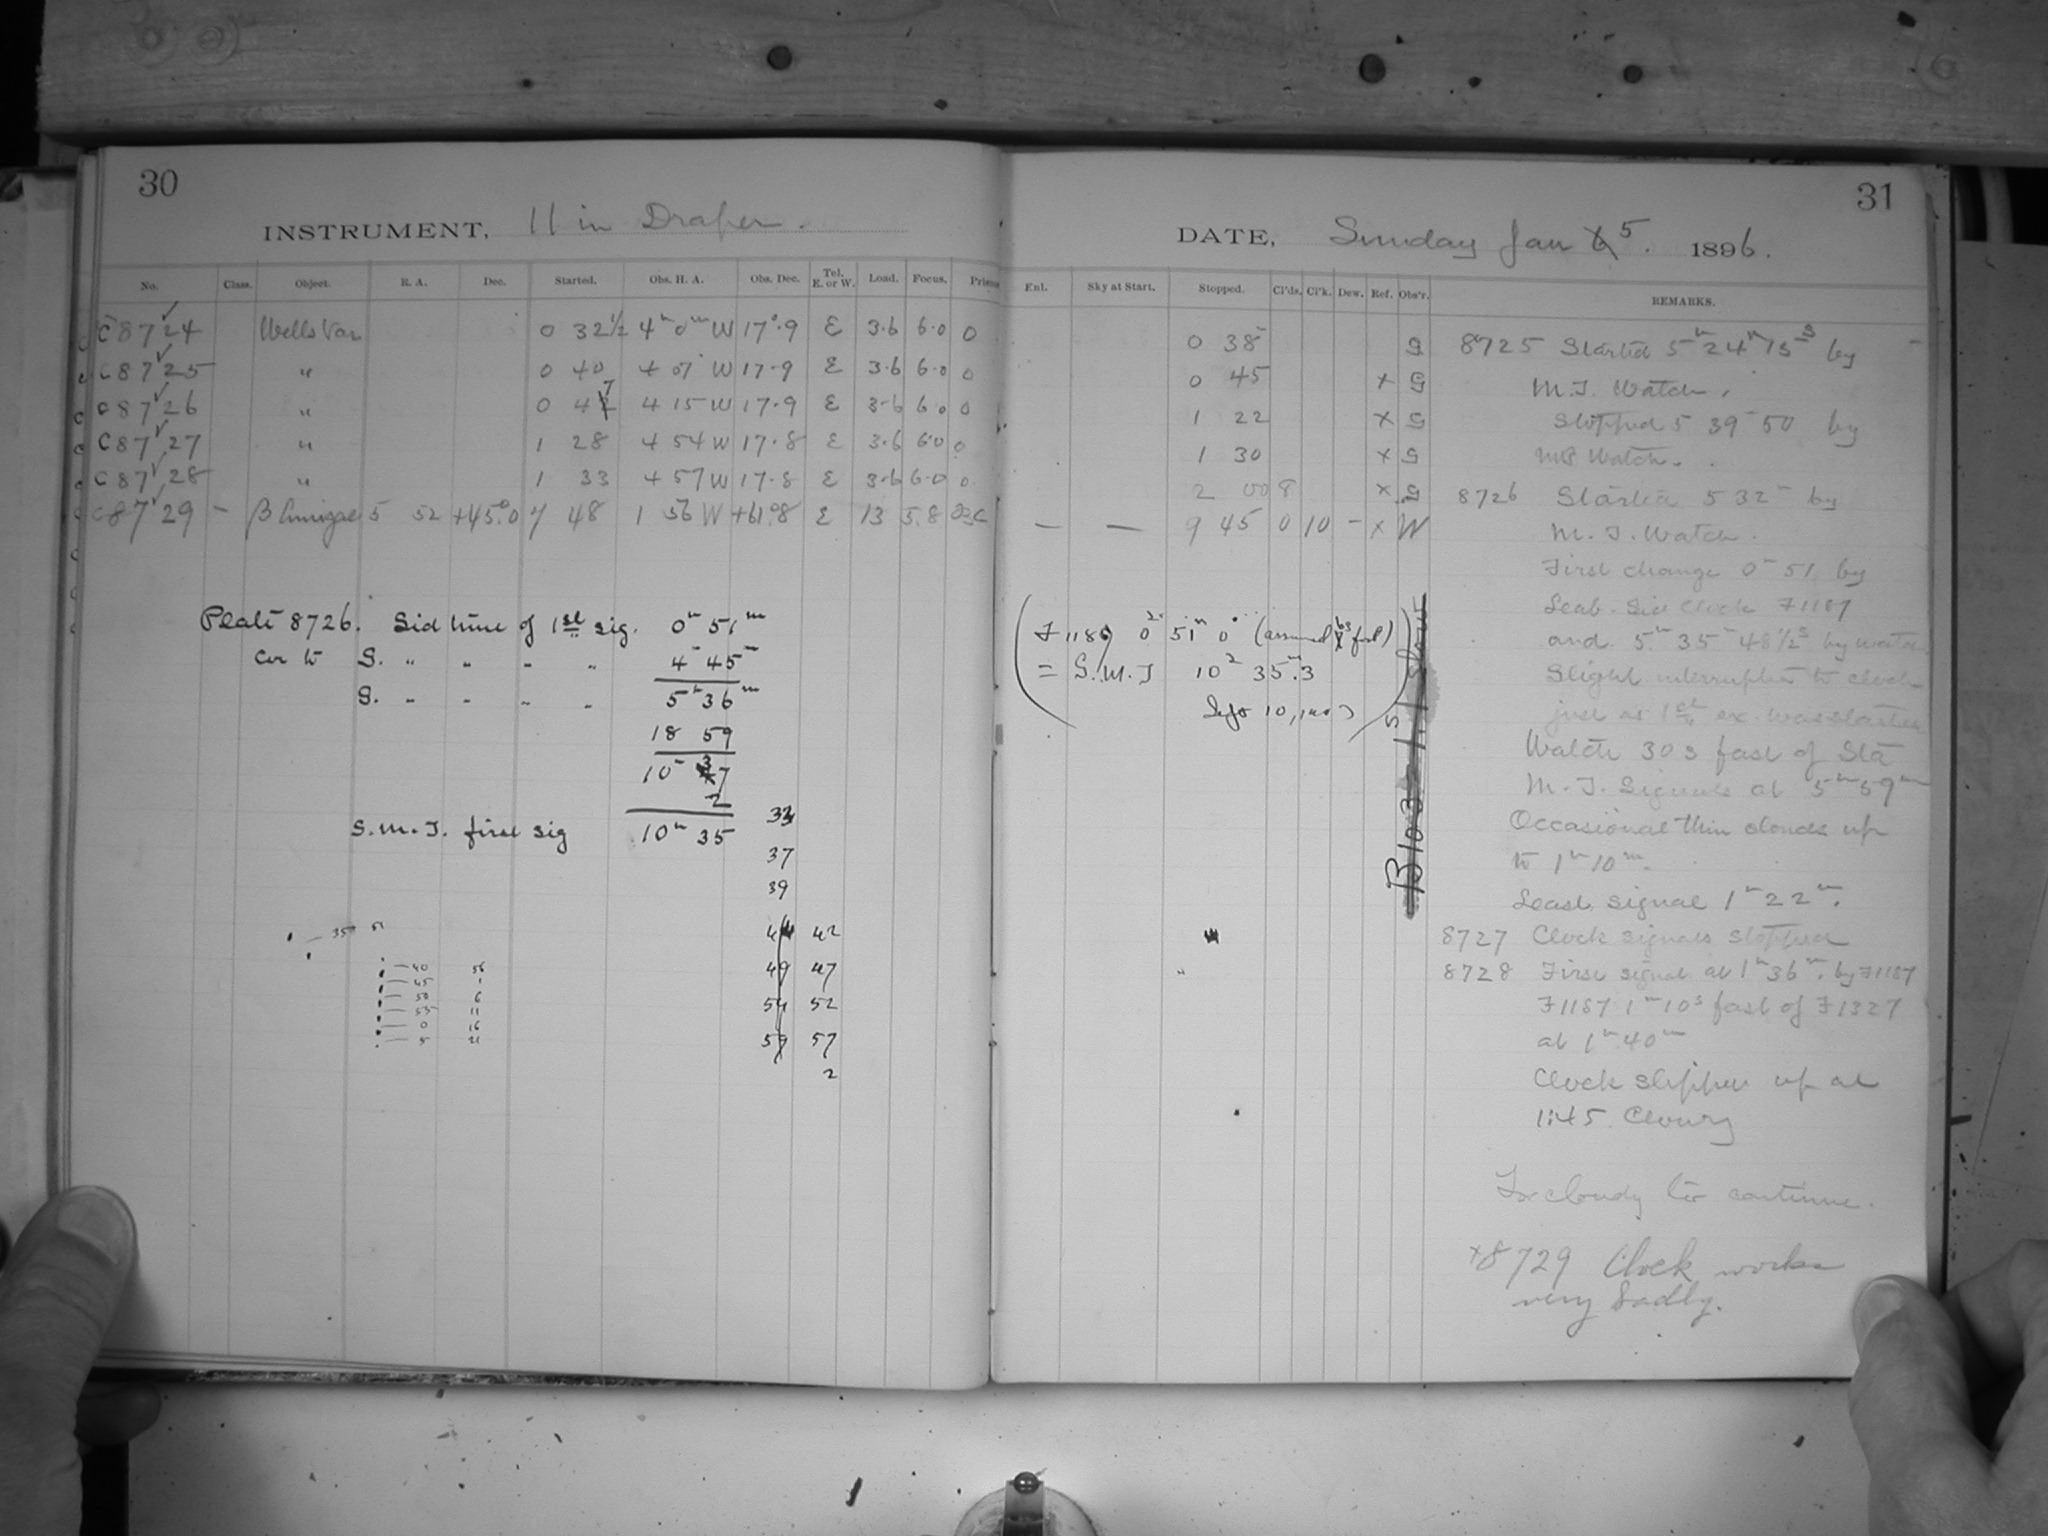 30
INSTRUMENT, 11 in Draper.
No. Class. Object. R. A. Dec. Started. Obs. H. A. Obs. Dec. Tel. E. or W. Load. Focus.
C8724 Wells Var 0 32½ 4ʰ 0ᵐ W 17°.9 E 3.6 6.0 0
C8725 " 0 40 4 07 W 17.9 E 3.6 6.0 0
C8726 " 0 47 4 15 W 17.9 E 3.6 6.0 0
C8727 " 1 28 4 54 W 17.8 E 3.6 6.0 0
C8728 " 1 33 4 57 W 17.8 E 3.6 6.0 0
C8729 – β Aurigae 5 52 +45.0 7 48 1 56 W +61.8 E 13 5.8
Plate 8726. Sid time of 1st sig. 0ʰ 51ᵐ
Cor to S. " " " " 4 45ᵐ
S. " " " " 5ʰ 36ᵐ
18 59
10 37
2
S.M.T. first sig 10ʰ 35
33
37
39
44 42
49 47
54 52
59 57
2
35 51
40 56
45 1
50 6
55 11
0 16
5 21
31
DATE, Sunday Jan 5. 1896.
Enl. Sky at Start. Stopped. Cl'ds. Cl'k. Dew. Ref. Obs'r. REMARKS.
0 38 G
0 45 x G
1 22 x G
1 30 x G
2 00 8 x G
— — 9 45 0 10 – x W
(F1187 0 51ᵐ 0 (assumed fast)
= S.M.T 10 35.3
8725 Started 5ʰ 24ᵐ 15ˢ by
M.T. Watch.
Stopped 5 39 50 by
Watch.
8726 Started 5 32ᵐ by
M.T. Watch.
First change 0 51 by
Seab. Sid Clock F1187
and 5ʰ 35ᵐ 48½ˢ by watch
Slight interruption to clock
just as 1st ex. was started
Watch 30s fast of Sta
M.T. Signals at 5ʰ 59ᵐ
Occasional thin clouds up
to 1ʰ 10ᵐ.
Last signal 1ʰ 22ᵐ.
8727 Clock signals stopped
8728 First signal at 1ʰ 36ᵐ. by F1187
F1187 1ᵐ 10ˢ fast of F1327
at 1ʰ 40ᵐ
Clock slipped up at
1:45 Cloudy
Too cloudy to continue.
x8729 Clock works
very badly.